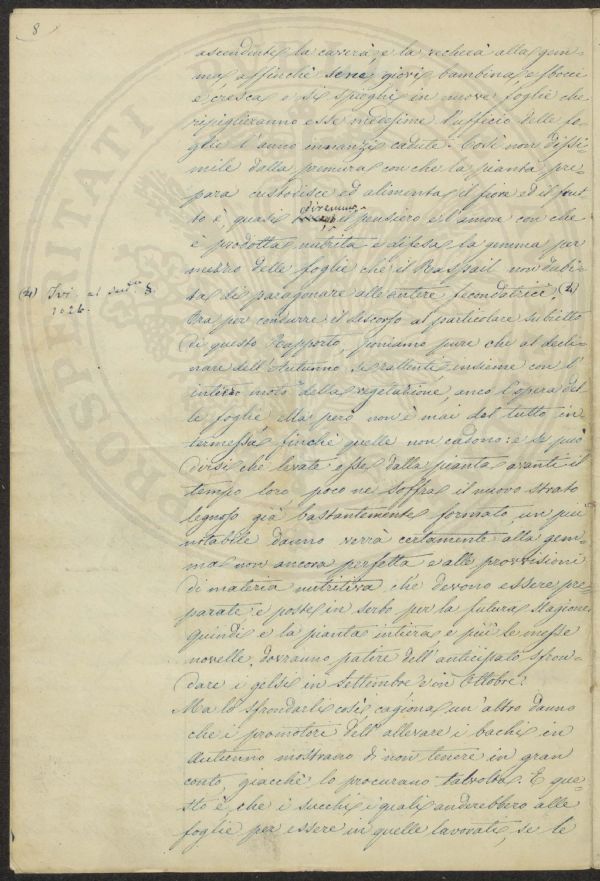 8
ascendente la caverà, e la recherà alla gem-
ma affinchè se ne giovi bambina, e sbocci
e cresca e si spieghi in nuove foglie che
ripiglieranno esse medesime l'ufficio delle fo-
glie l'anno innanzi cadute. Così non dissi-
mile dalla premura con che la pianta pre-
para custodisce ed alimenta il fiore ed il frut-
to è, quasi diremmo, il pensiero e l'amore con che
è prodotta nutrita e difesa la gemma per
mezzo delle foglie che il Raspail non dubi-
ta di paragonare alle antere fecondatrici. (4)
(4) Ivi al
1026.
Ora per condurre il discorso al particolare subietto
di questo Rapporto, poniamo pure che al decli-
nare dell'Autunno si rallenti insieme con l'
intiero moto della vegetazione, anco l'opera del-
le foglie. Ma però non è mai del tutto in
termessa, finchè quelle non cadono: e se può
dirsi che levate esse dalla pianta avanti il
tempo loro, poco ne soffra il nuovo strato
legnoso già bastantemente formato, un più
notabile danno verrà certamente alla gem-
ma non ancora perfetta e alle provvisioni
di materia nutritiva che devono essere pre-
parate e poste in serbo per la futura stagione.
Quindi e la pianta intiera, e più le messe
novelle, dovranno patire dell'anticipato sfron-
dare i gelsi in Settembre e in Ottobre.
Ma lo sfrondarli così cagiona un altro danno
che i promotori dell'allevare i bachi in
Autunno mostrano di non tenere in gran
conto, giacchè lo procurano talvolta. E que-
sto è, che i succhi i quali anderebbero alle
foglie per essere in quelle lavorati, se le